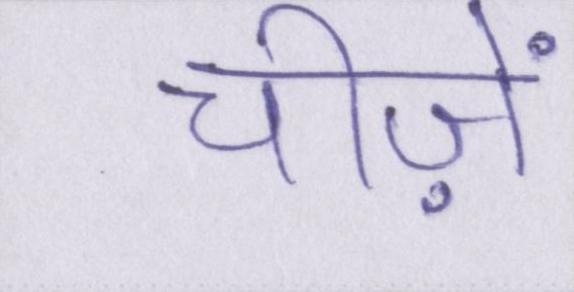 चीज़ें